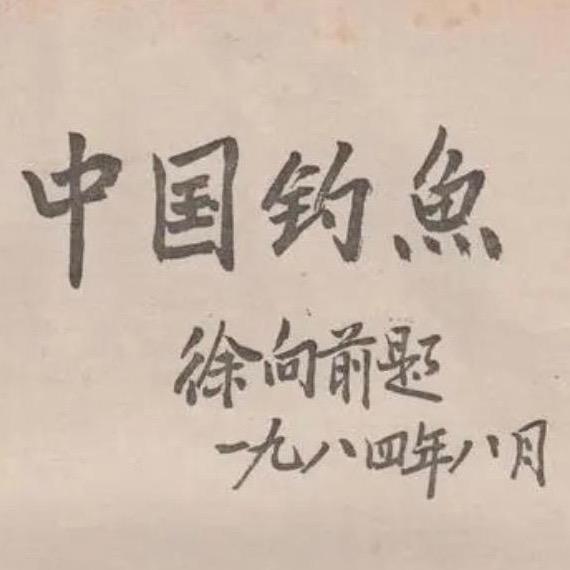 中国钓魚
徐向前题
一九八四年八月